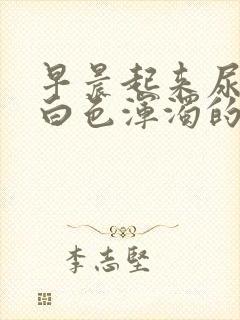 早晨起来尿
白色浑浊的
李志坚